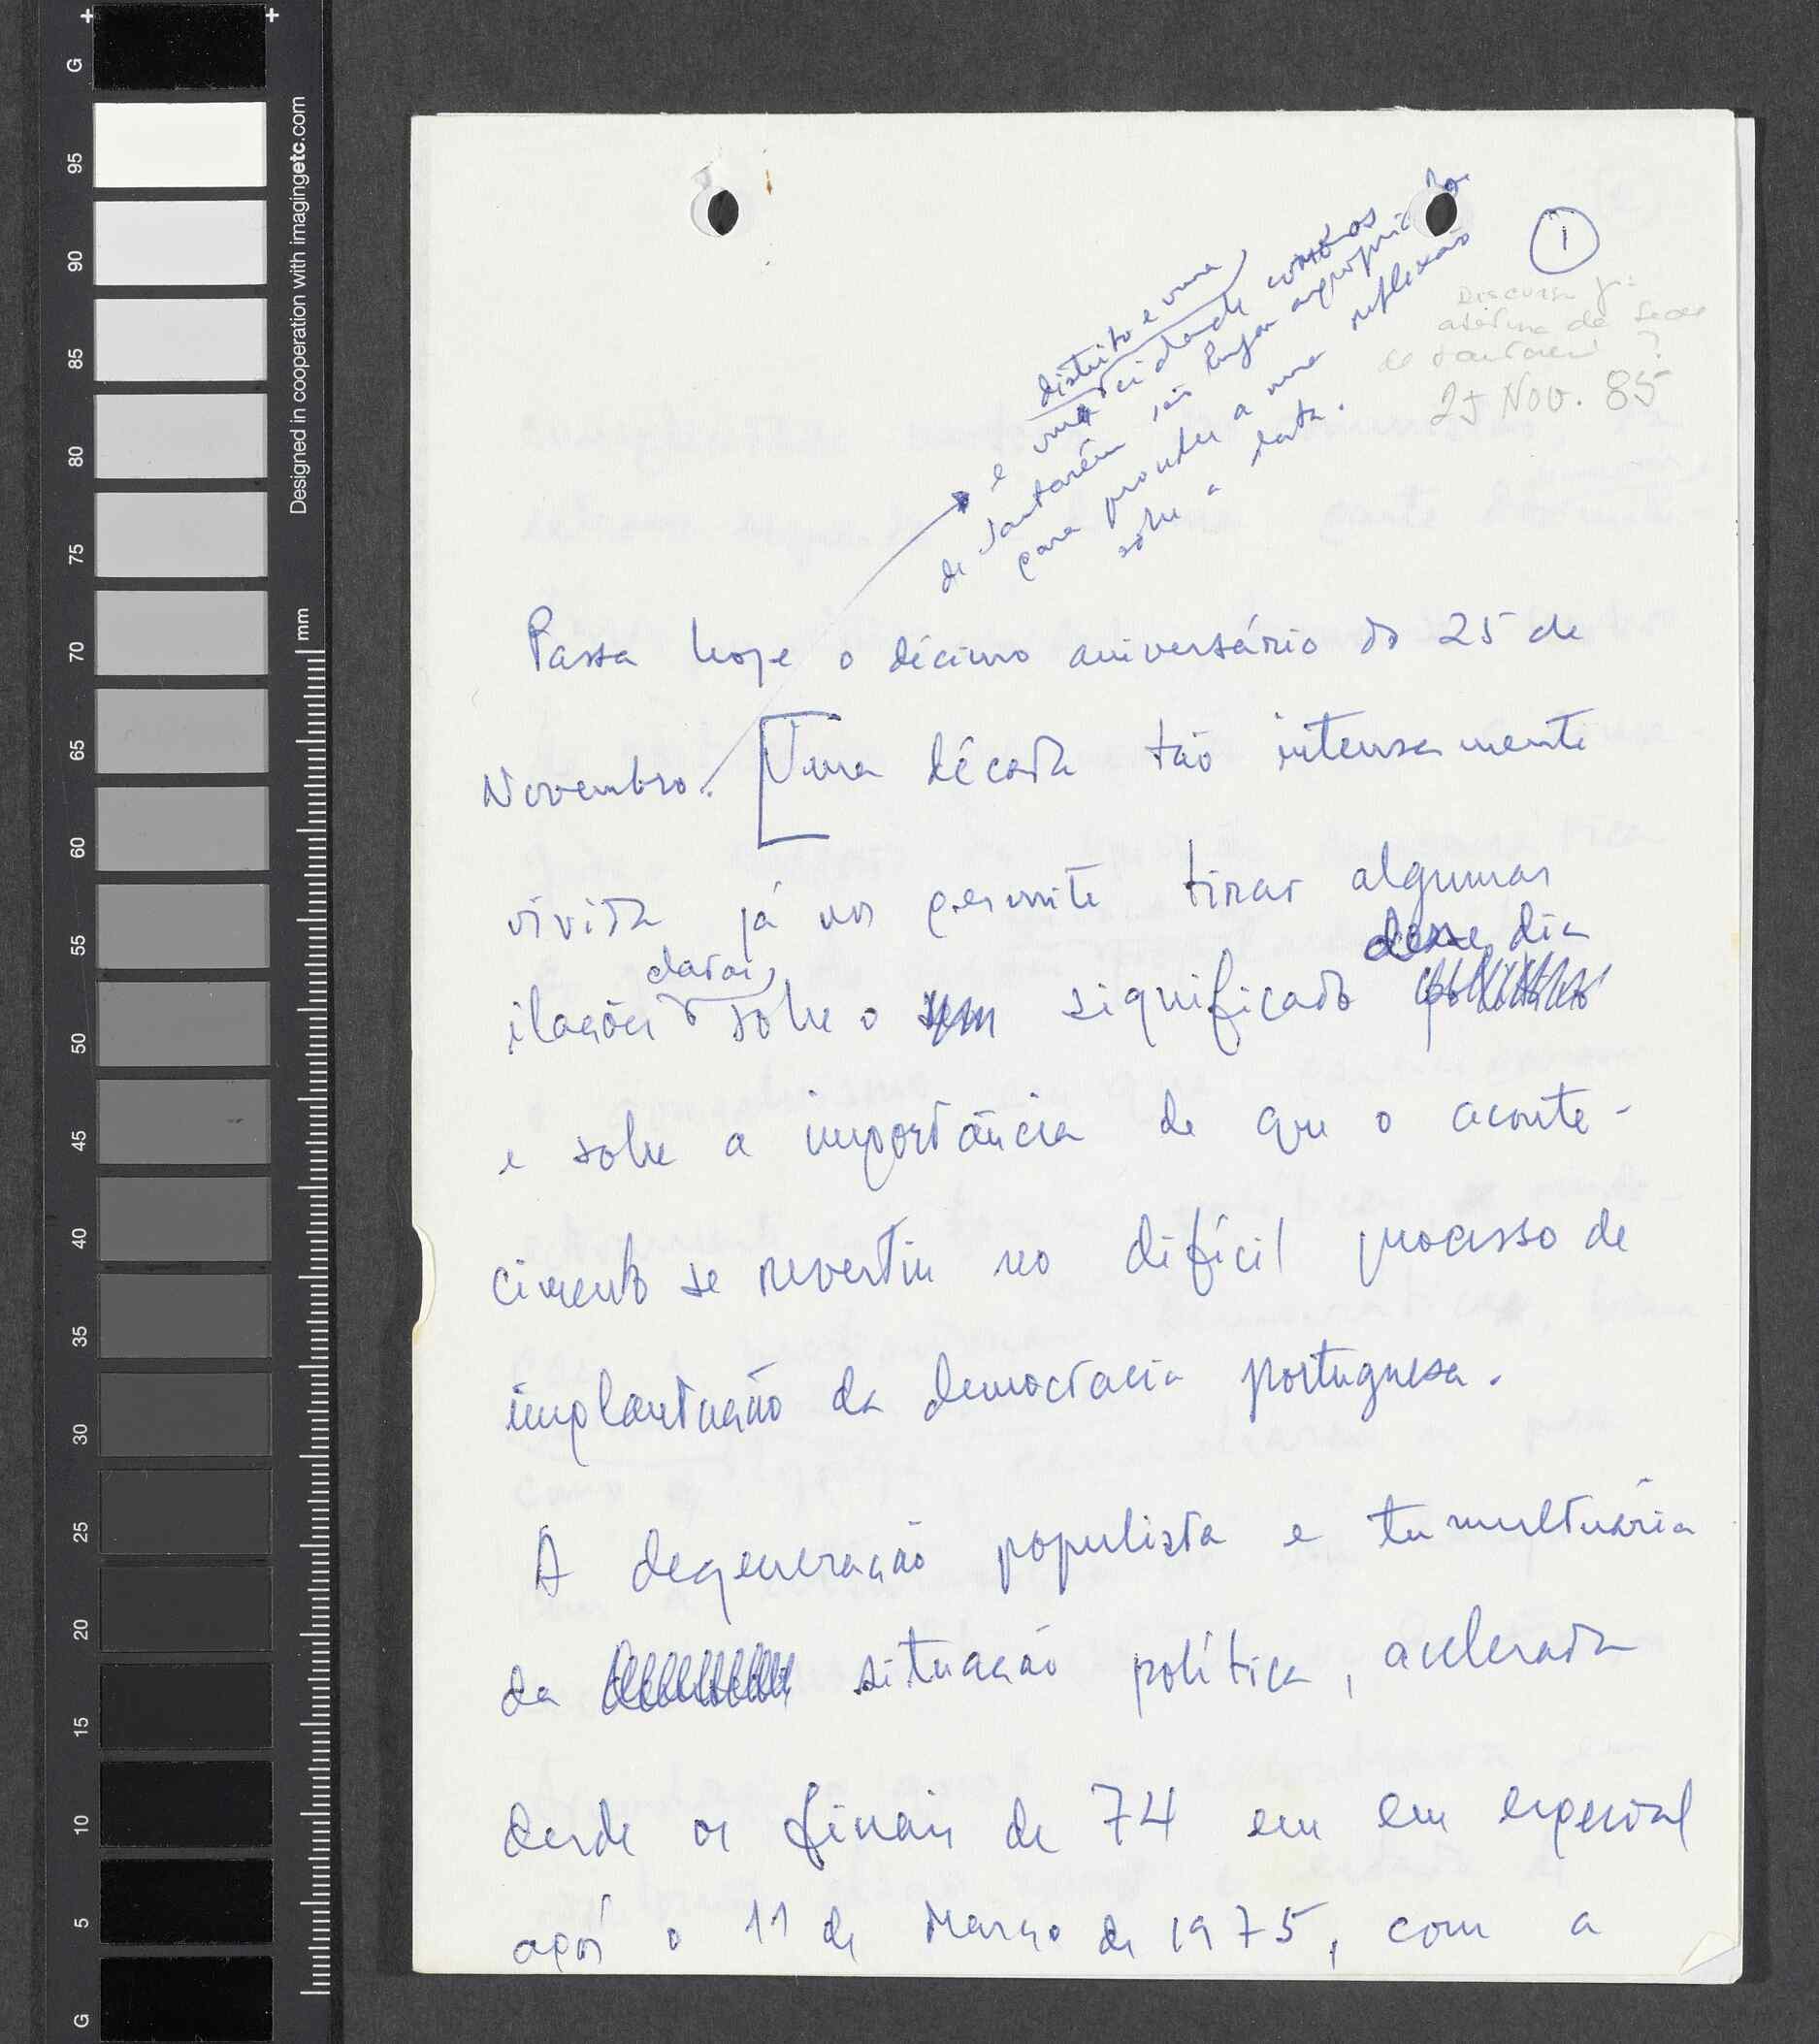 1
Discurso
25 Nov. 85
distrito e uma
e uma cidade como os
de Santarém são lugar apropriado
para proceder a uma reflexão
sobre a data.
Passa hoje o décimo aniversário do 25 de
Novembro. Uma década tão intensamente
vivida já nos permite tirar algumas
claras desse dia
ilações sobre o significado
e sobre a importância de que o aconte-
cimento se revertiu no difícil processo de
implantação da democracia portuguesa.
A degeneração populista e tumultuária
da situação política, acelerada
desde os finais de 74 em em especial
após o 11 de Março de 1975, com a
G
95
90
85
80
75
70
65
60
55
50
45
40
35
30
25
20
15
10
5
G
Designed in cooperation with imagingetc.com
mm